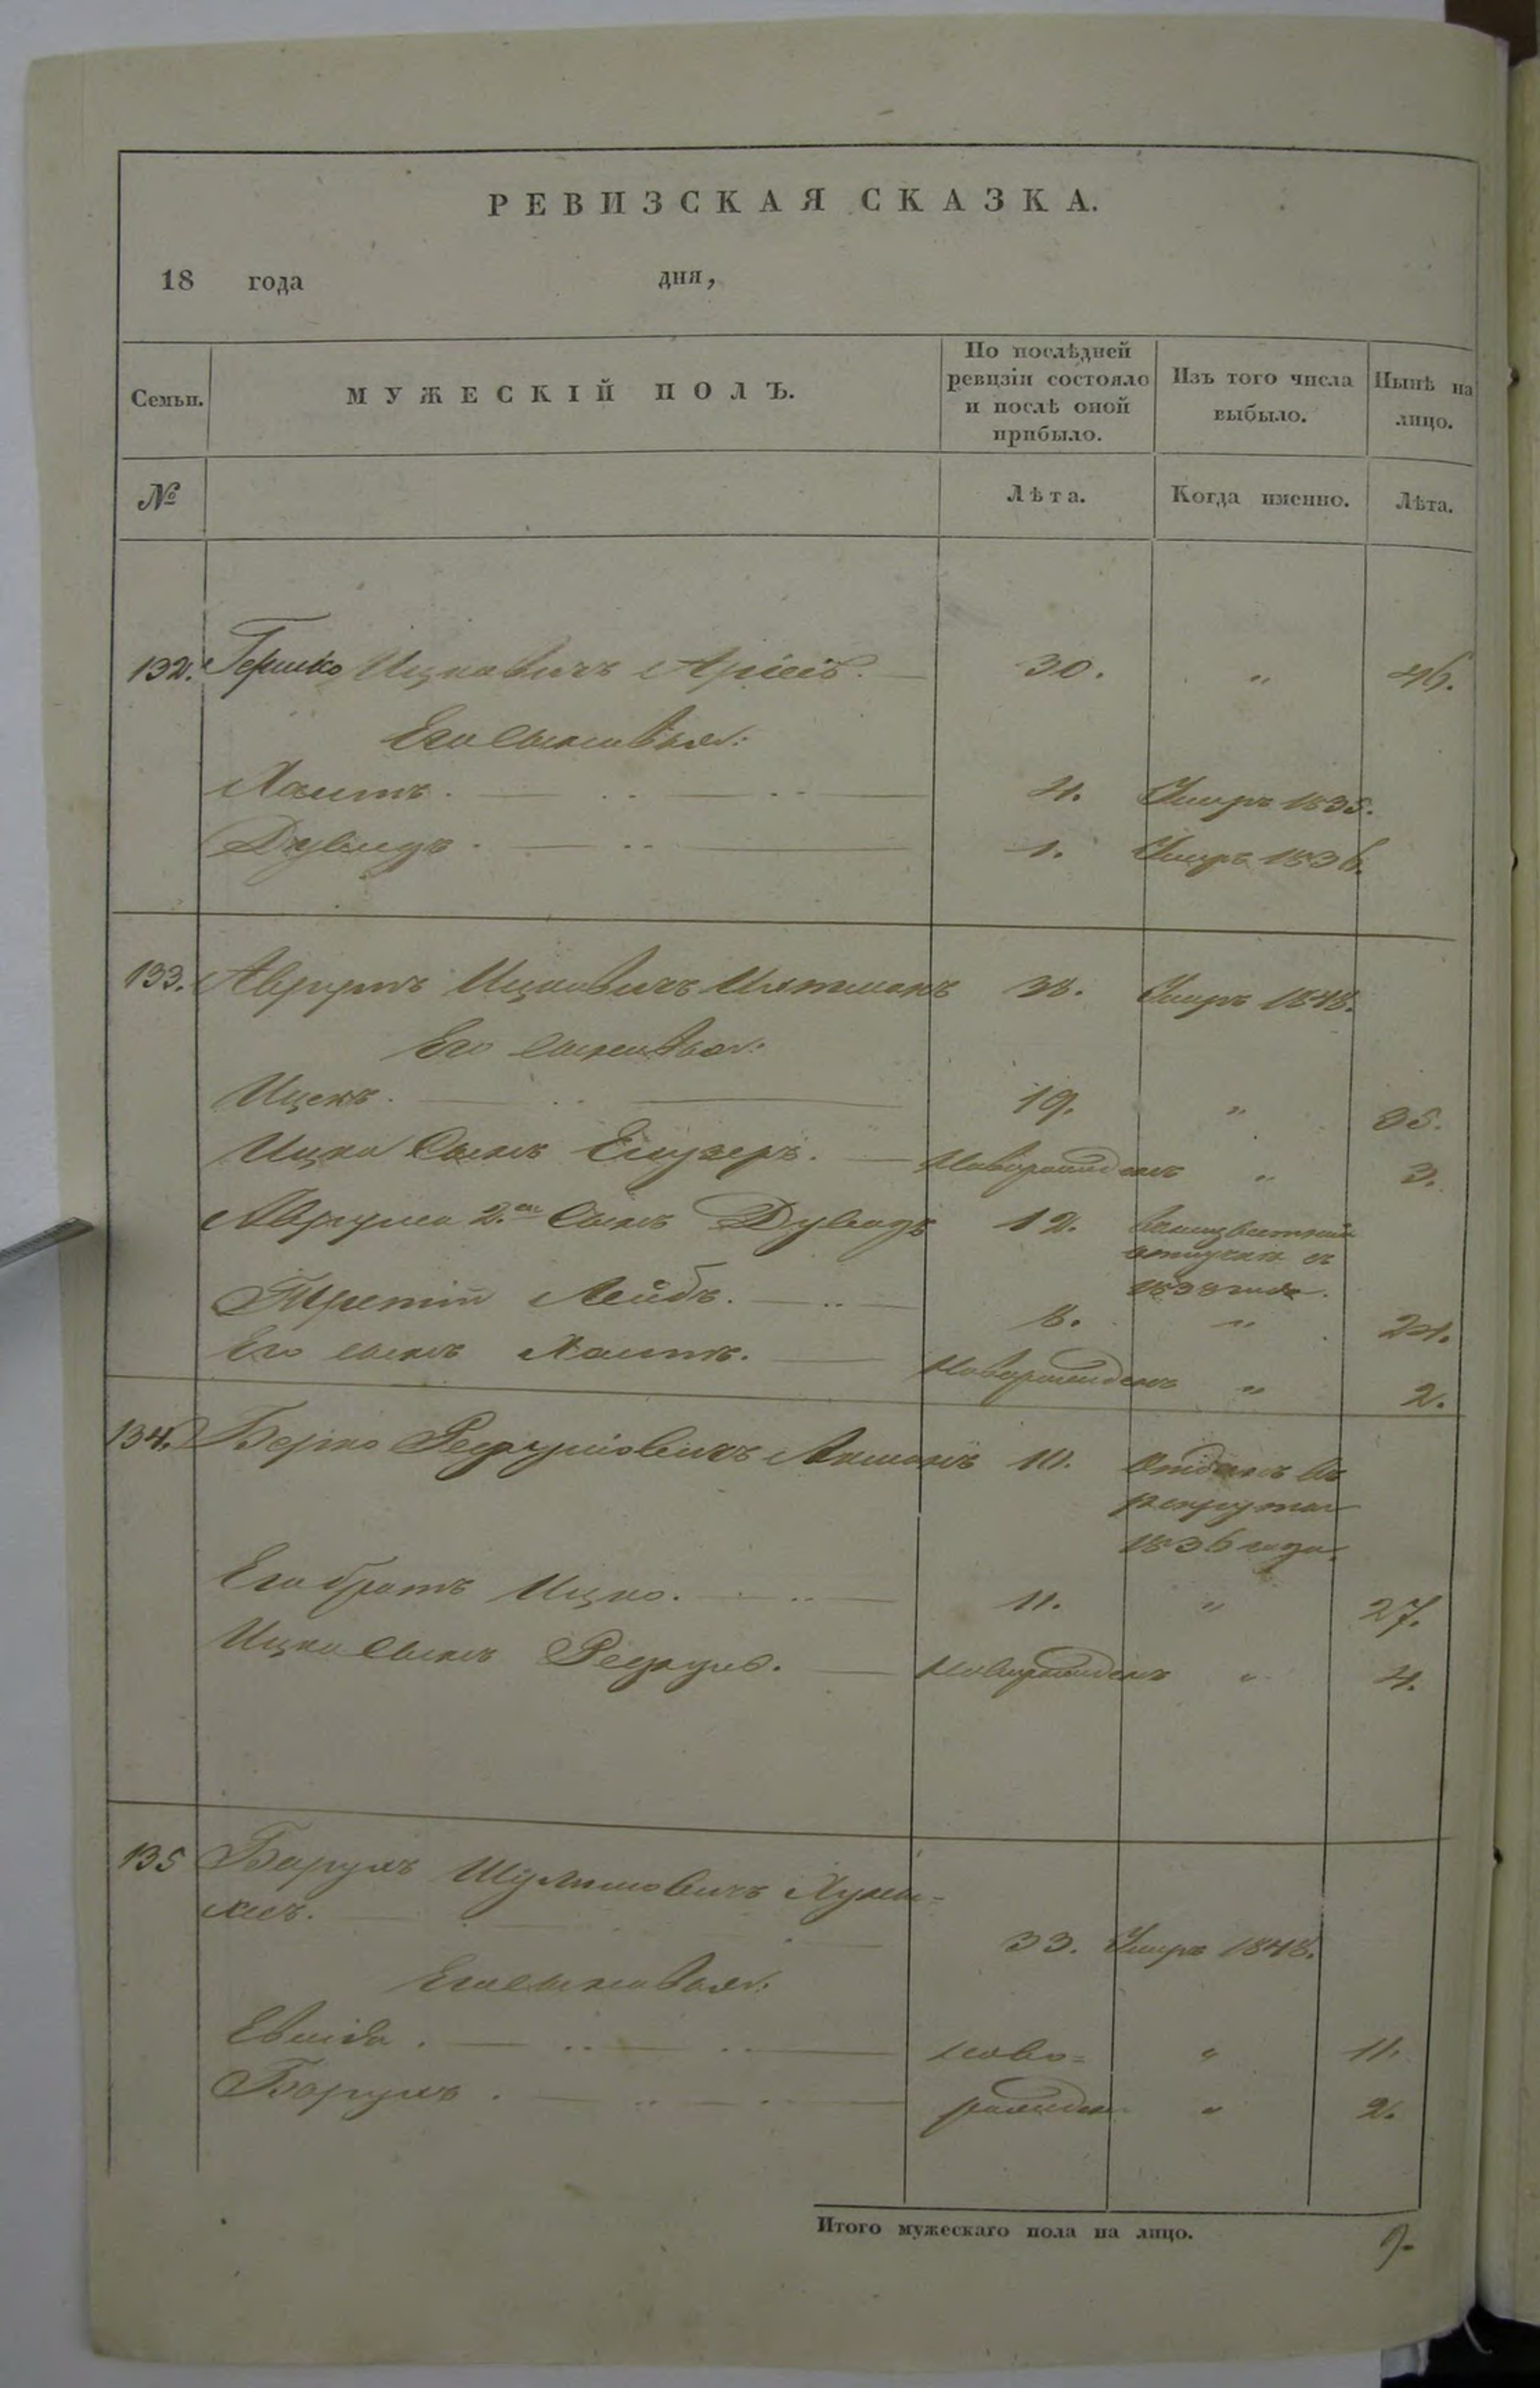 РЕВИЗСКАЯ СКАЗКА.
18 года дня,
Семьи.
МУЖЕСКІЙ ПОЛЪ.
По послѣдней
ревизіи состояло
и послѣ оной
прибыло.
Изъ того числа
выбыло.
Нынѣ на
лицо.
№
Лѣта.
Когда именно.
Лѣта.
132. Гершко Ицковичъ 30. " 46.
Его сыновья:
Хаимъ. 4. Умеръ 1835.
Дувидъ. 1. Умеръ 1836.
133. Аврумъ Ицковичъ 38. Умеръ 1848.
Его сыновья:
Ицекъ. 19. " 35.
Ицка сынъ Новорожденъ " 3.
Аврума 2.й сынъ Дувидъ 12. 
отлучкѣ съ
1838 года.
Третій Лейбъ. 8. " 24.
Его сынъ Хаимъ. Новорожденъ " 2.
134. Берко 10. Отданъ въ
рекруты
1836 года.
Его братъ Ицко. 11. " 27.
Ицка сынъ Новорожденъ " 4.
135 Шулимовичъ
33. Умеръ 1848.
Его сыновья:
ново= " 11.
рожден " 2.
Итого мужескаго пола на лицо. 9.